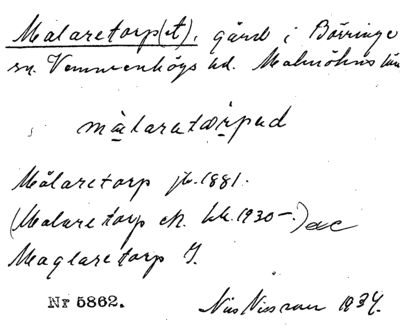 Målaretorp(et), gård i Börringe
sn. Vemmenhögs hd. Malmöhus län
målaratorpad
Målaretorp jb. 1881.
(Målaretorp ek. kk. 1930–)
Maglaretorp J.
Nr 5862. Nils Nilsson 1934.